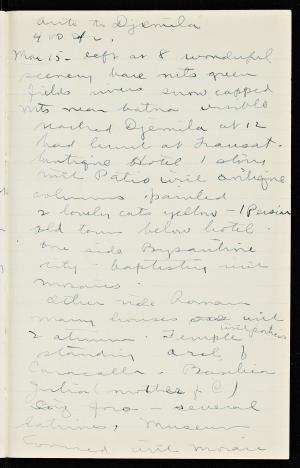 auto to Djemila
400 fr.
Mar 15 - left at 8 wonderful
scenery bare mts green
fields rivers snow capped
mts near Batna visible
reached Djemila at 12
had lunch at Transat.
Hotel 1 story
with Patio with antique
columns, painted
2 lovely cats yellow - 1 Persian
old town below hotel.
One side Byzantine
city - baptistry with
mosaics.
Other side Roman
many houses with
2 atrium. Temple with porticos
standing arch of
Caracalla. Basilica
Julia (mother of C)
Big foro - several
latrines, Museum
covered with mosaic